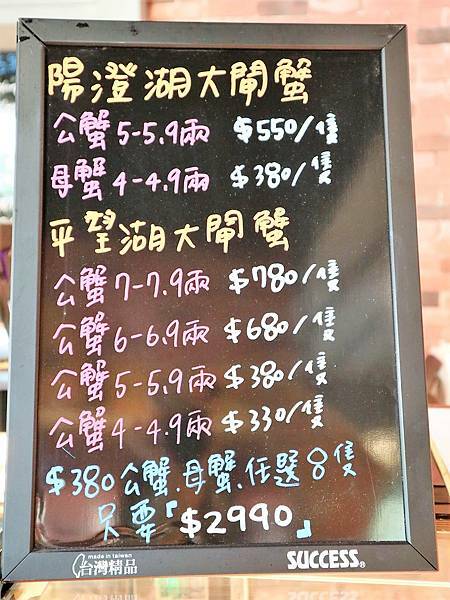 陽澄湖大閘蟹
公蟹5-5.9兩 $550/隻
母蟹4-4.9兩 $380/隻
平望湖大閘蟹
公蟹7-7.9兩 $780/隻
公蟹6-6.9兩 $680/隻
公蟹5-5.9兩 $380/隻
公蟹4-4.9兩 $330/隻
$380公蟹.母蟹.任選8隻
只要「$2990」
made in taiwan
台灣精品
SUCCESS®